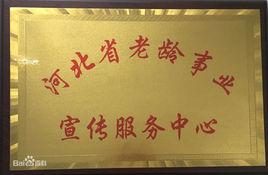 河北省老龄事业
宣传服务中心
Bai百科